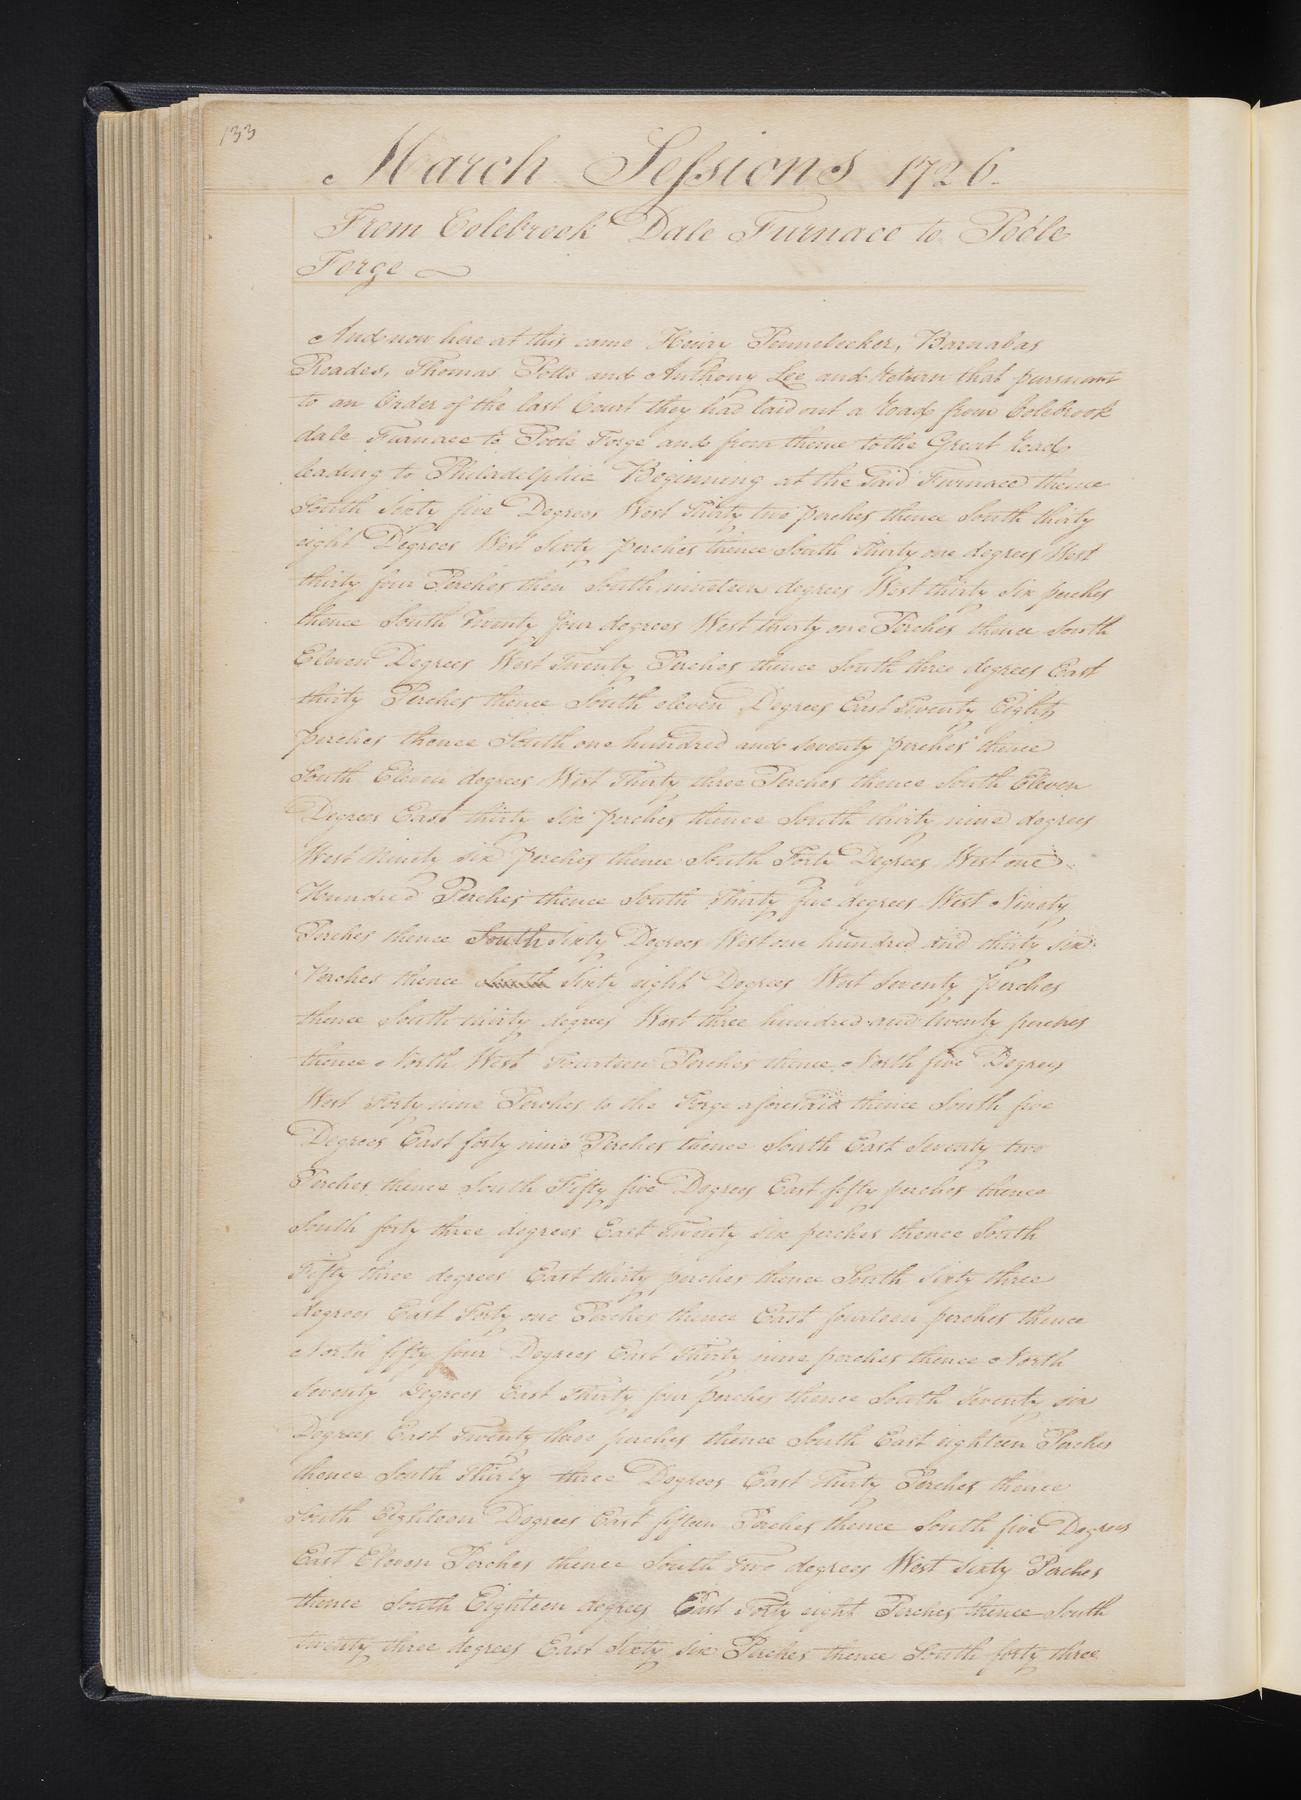 133
March Sessions 1726.
From Colebrook Dale Furnace to Poole
Forge
And now here at this came Henry Pennebecker, Barnabas
Roades, Thomas Potts and Anthony Lee and Return that pursuant
to an Order of the last Court they had laid out a Road from Colebrook
dale Furnace to Poole Forge and from thence to the Great Road
leading to Philadelphia Beginning at the Said Furnace thence
South Sixty five Degrees West Thirty two perches thence South thirty
eight Degrees West Sixty perches thence South Thirty one degrees West
thirty four Perches then South nineteen degrees West thirty Six perches
thence South Twenty four degrees West thirty one Perches thence South
Eleven Degrees West Twenty Perches thence South three degrees East
thirty Perches thence South eleven Degrees East Twenty Eight
perches thence South one hundred and seventy perches thence
South Eleven degrees West Thirty three Perches thence South Eleven
Degrees East thirty six perches thence South thirty nine degrees
West Ninety six perches thence South Forty Degrees West one
Hundred Perches thence South Thirty five degrees West Ninety
Perches thence South Sixty Degrees West one hundred and thirty six
Perches thence South Sixty eight Degrees West Seventy perches
thence South thirty degrees West three hundred and twenty perches
thence North West Fourteen Perches thence North five Degrees
West Forty nine Perches to the Forge aforesaid thence South five
Degrees East forty nine Perches thence South East Seventy two
Perches thence South Fifty five Degrees East fifty perches thence
South forty three degrees East Twenty six perches thence South
Fifty three degrees East thirty perches thence South Sixty three
degrees East Forty one Perches thence East fourteen perches thence
North fifty four Degrees East Thirty nine perches thence North
Seventy Degrees East thirty four perches thence South Seventy six
Degrees East Twenty three perches thence South East eighteen Perches
thence South Thirty three Degrees East Thirty Perches thence
South Eighteen Degrees East fifteen Perches thence South five Degrees
East Eleven Perches thence South two degrees West Sixty Perches
thence South Eighteen degrees East Forty eight Perches thence South
twenty three degrees East Sixty six Perches thence South forty three